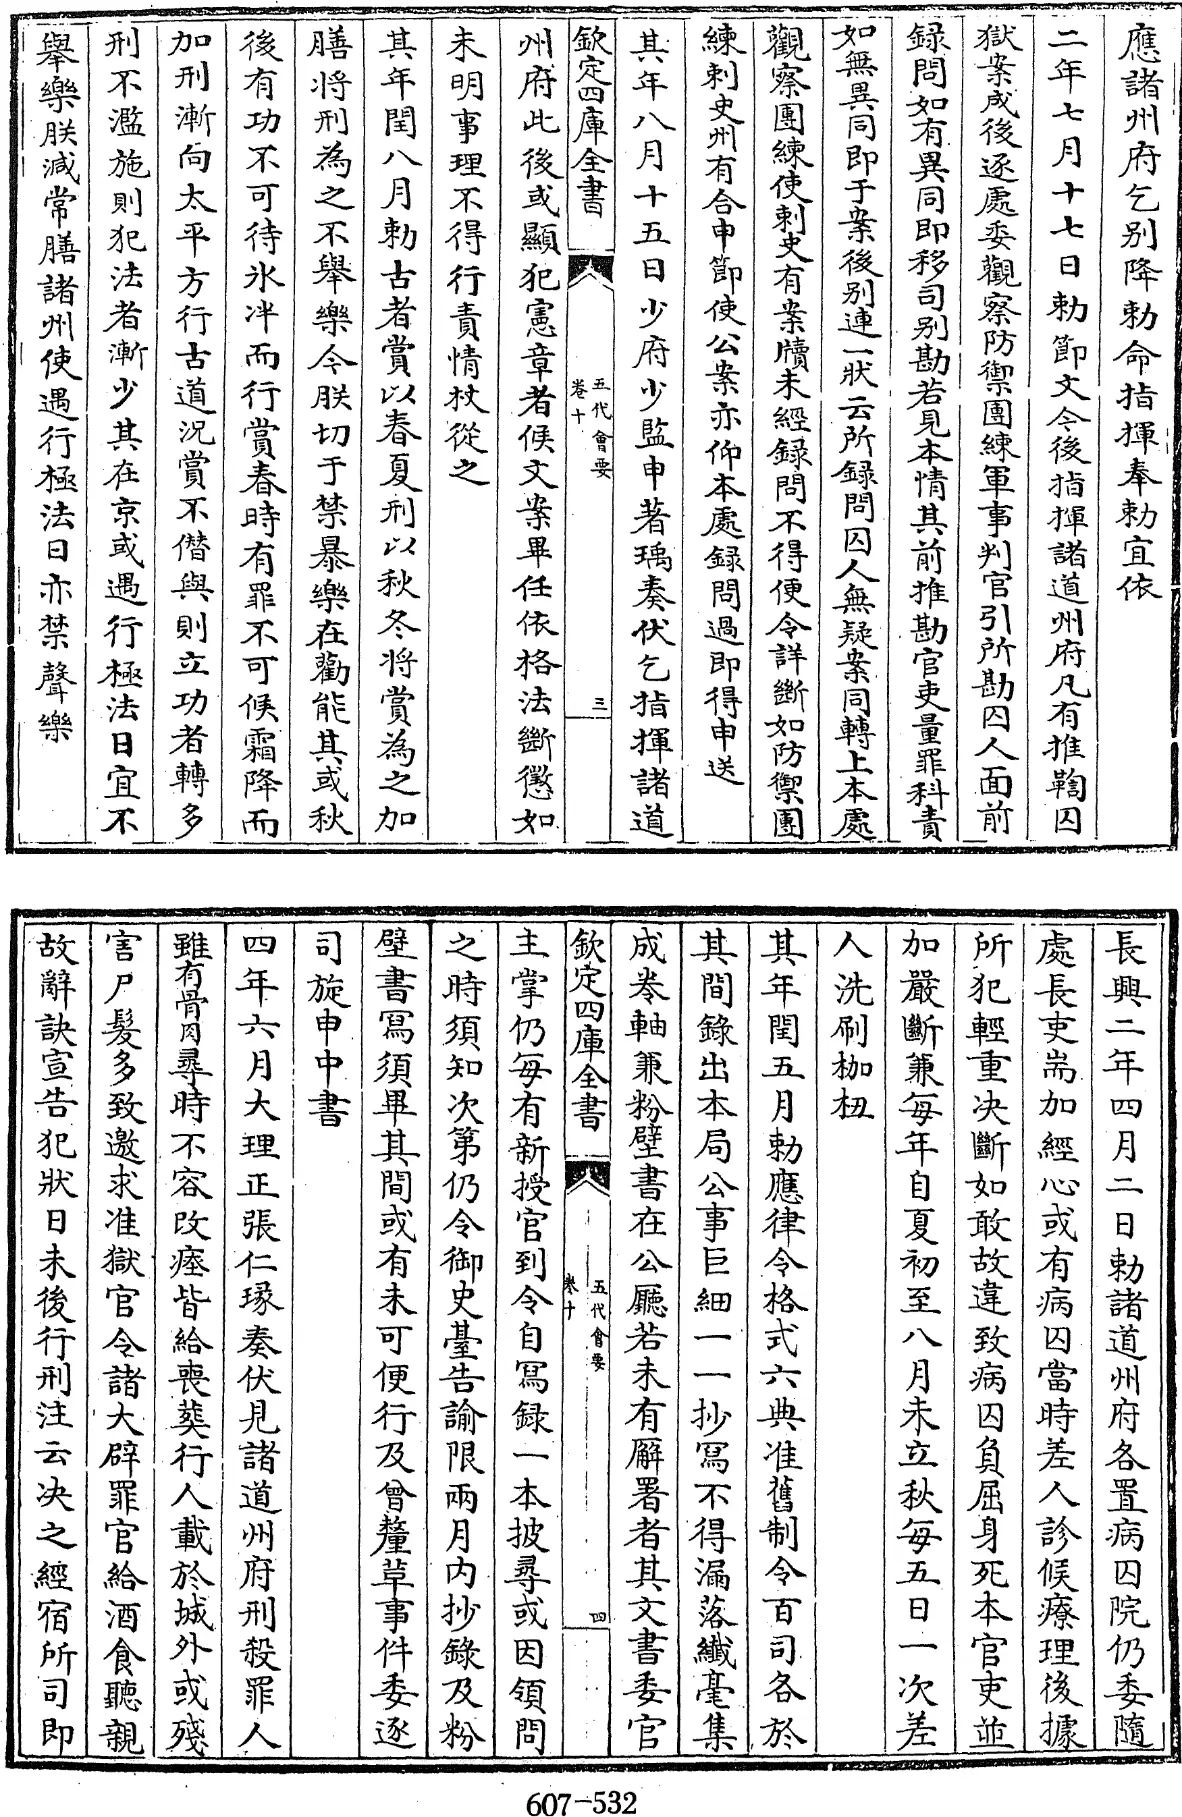 應諸州府乞别降勅命指揮奉勅宜依
二年七月十七日勅節文今後指揮諸道州府凡有推鞫囚
獄案成後逐處委觀察防禦團練軍事判官引所勘囚人面前
録問如有異同即移司别勘若見本情其前推勘官吏量罪科責
如無異同即于案後别連一狀云所録問囚人無疑案同轉上本處
觀察團練使刺史有案牘未經録問不得便令詳斷如防禦團
練刺史州有合申節使公案亦仰本處録問過即得申送
其年八月十五日少府少監申著瑀奏伏乞指揮諸道
欽定四庫全書
五代會要
卷十
三
州府此後或顯犯憲章者候文案畢任依格法斷懲如
未明事理不得行責情杖從之
其年閏八月勅古者賞以春夏刑以秋冬將賞為之加
膳將刑為之不舉樂今朕切于禁暴樂在勸能其或秋
後有功不可待氷泮而行賞春時有罪不可候霜降而
加刑漸向太平方行古道況賞不僭與則立功者轉多
刑不濫施則犯法者漸少其在京或遇行極法日宜不
舉樂朕減常膳諸州使遇行極法日亦禁聲樂
長興二年四月二日勅諸道州府各置病囚院仍委隨
處長吏耑加經心或有病囚當時差人診候療理後據
所犯輕重决斷如敢故違致病囚負屈身死本官吏並
加嚴斷兼每年自夏初至八月末立秋每五日一次差
人洗刷枷杻
其年閏五月勅應律令格式六典准舊制令百司各於
其間錄出本局公事巨細一一抄寫不得漏落纖毫集
成卷軸兼粉壁書在公廳若未有廨署者其文書委官
欽定四庫全書
五代會要
卷十
四
主掌仍每有新授官到令自寫録一本披尋或因領問
之時須知次第仍令御史臺告諭限兩月内抄錄及粉
壁書寫須畢其間或有未可便行及曾釐革事件委逐
司旋申中書
四年六月大理正張仁瑑奏伏見諸道州府刑殺罪人
雖有骨肉尋時不容改瘞皆給喪葬行人載於城外或殘
害尸髮多致邀求准獄官令諸大辟罪官給酒食聽親
故辭訣宣告犯狀日未後行刑注云决之經宿所司即
607-532